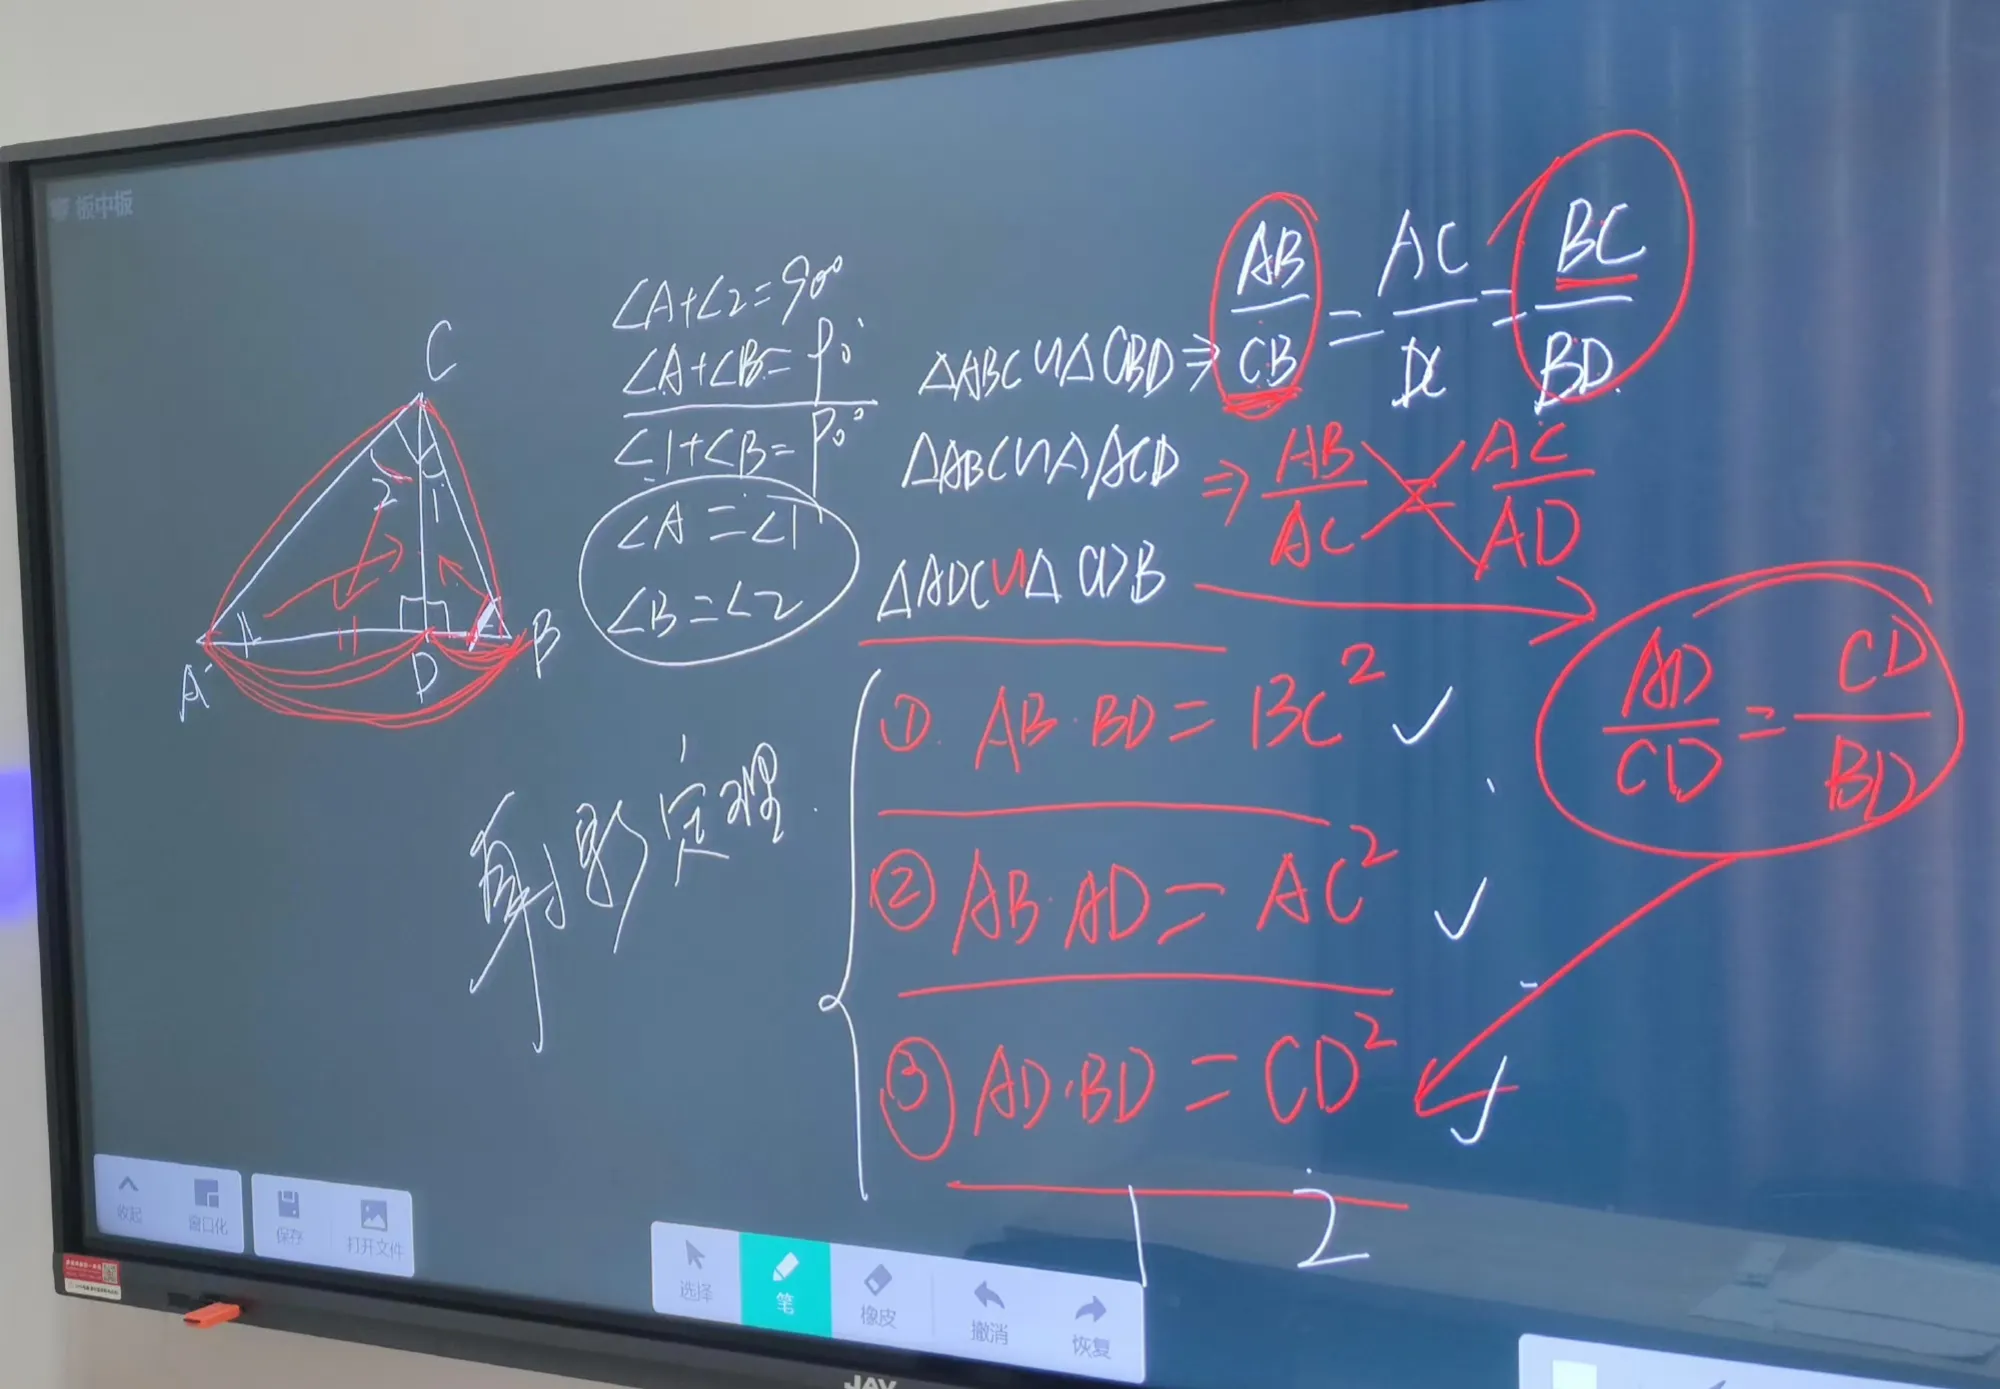 板中板
C
2
1
A
D
B
∠A+∠2=90°
∠A+∠B=90°
∠1+∠B=90°
∠A=∠1
∠B=∠2
△ABC∽△CBD⇒AB/CB=AC/DC=BC/BD
△ABC∽△ACD⇒AB/AC=AC/AD
△ADC∽△CDB
AD/CD=CD/BD
射影定理
① AB·BD=BC²
② AB·AD=AC²
③ AD·BD=CD²
1 2
收起
窗口化
保存
打开文件
选择
笔
橡皮
撤消
恢复